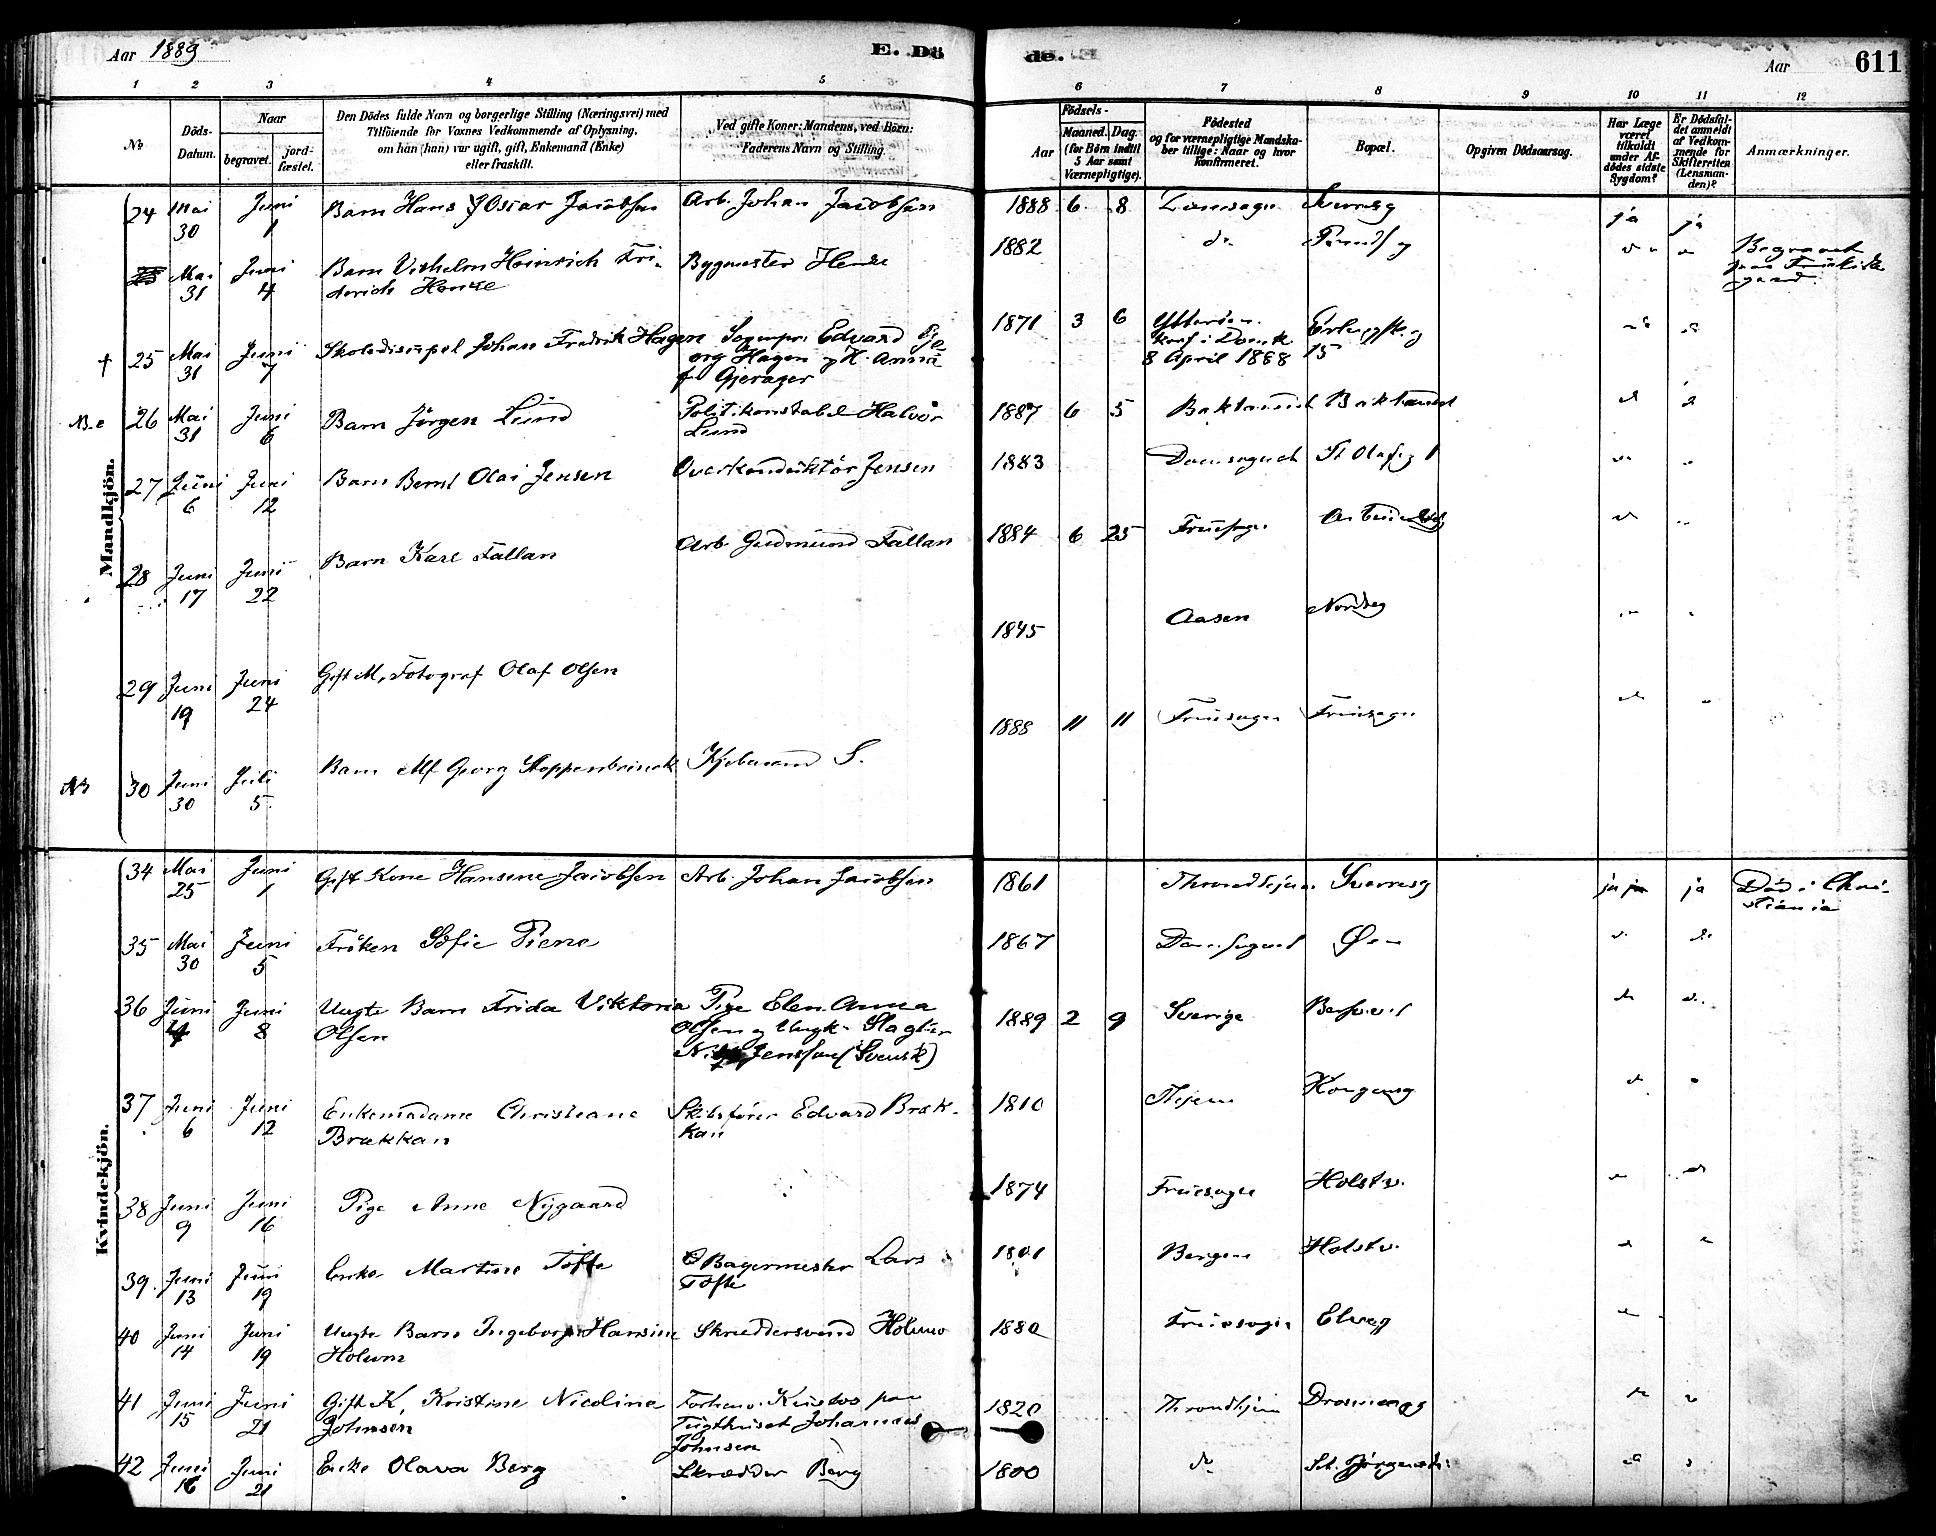 Aar 1889
E. Dö
de.
Aar
611
1 2 3 4 5 6 7 8 9 10 11 12
No
Döds-
Datum.
Naar
begravet.
jord-
fæstet.
Den Dödes fulde Navn og borgerlige Stilling (Næringsvei) med
Tilföiende for Voxnes Vedkommende af Oplysning,
om han (hun) var ugift, gift, Enkemand (Enke)
eller fraskilt.
Ved gifte Koner: Mandens, ved Börn:
Faderens Navn og Stilling.
Aar
Födsels-
Maaned. Dag.
(for Börn indtil
5 Aar samt
Værnepligtige).
Födested
og for værnepligtige Mandska-
ber tillige: Naar og hvor
konfirmeret.
Bopæl.
Opgiven Dödsaarsag.
Har Læge
været
tilkaldt
under Af-
dödes sidste
Sygdom?
Er Dödsfal-
det anmeldt
af Vedkom-
mende for
Skifteretten
(Lensman-
den)?
Anmærkninger.
Mandkjön.
24 Mai 30 Juni 1 Barn Hans Oscar Jacobsen Arb. Johan Jacobsen 1888 6 8 ja ja
Mai 31 Juni 4 Barn Vilhelm Heinrich Fri-
derich Bygmester 1882 do Begravet
31 4
† 25 Mai 31 Juni 7 Skoledisipel Johan Fredrik Hagen Edvard
1871 3 6
org Hagen og H. Anna
f. Gjerager
8 April 1888 15
26 Mai 31 Juni 6 Barn Jörgen Lund Politikonstabel Halvor
Lund 1887 6 5 Baklandet Baklandet
27 Juni 6 Juni 12 Barn Bernt Olai Jensen Overkonduktör Jensen 1883 Domsognet St Olafsg 1
28 Juni 17 Juni 22 Barn Karl Fallan Arb Gudmund Fallan 1884 6 25 Fruesogn
29 Juni 19 Juni 24 Gift M, Fotograf Olaf Olsen 1845 Aasen Nordreg
NB 30 Juni 30 Juli 5 Barn Alf Georg Stoppenbrinck Kjöbmand S. 1888 11 11 Fruesogn Fruesogn
Kvindekjön.
34 Mai 25 Juni 1 Gift Kone Hansine Jacobsen Arb. Johan Jacobsen 1861 Throndhjem Sverresg ja ja Död i Chri-
stiania
35 Mai 30 Juni 5 Fröken Sofie Piene 1867 Domsognet Öen
36 Juni 4 Juni 8 Uægte Barn Frida Viktoria
Olsen Pige Elen Anna
Olsen og Ungk. Slagter
Jenssen (Svensk) 1889 2 9 Sverige
37 Juni 6 Juni 12 Enkemadame Christiane
Brækkan Skibsförer Edvard Bræk-
kan 1810 Thjem Kongensg
38 Juni 9 Juni 16 Pige Anne Nygaard 1874 Fruesogn Holstv.
39 Juni 13 Juni 19 Enke Martine Tofte Bagermester Lars
Tofte 1801 Bergen Holstv.
40 Juni 14 Juni 19 Uægte Barn Ingeborg Hansine
Holum Skreddersvend Holmo 1880 Fruesogn Elveg
41 Juni 15 Juni 21 Gift K, Kristine Nicoline
Johnsen Forhenv. Kustos paa
Tugthuset Johannes
Johnsen 1820 Throndhjem Dronningsg
42 Juni 16 Juni 21 Enke Olava Berg Skrædder Berg 1800 do